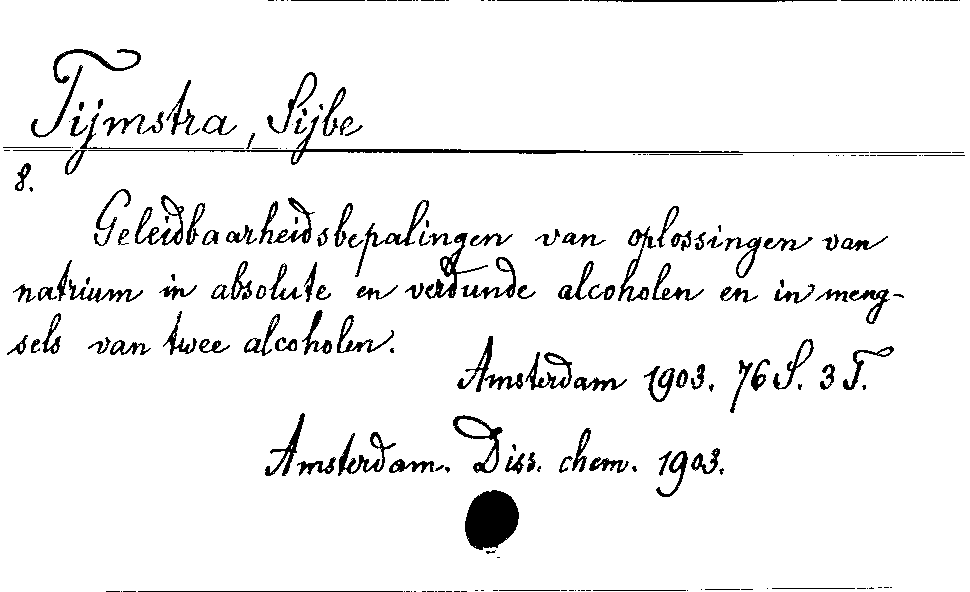 Tijmstra, Sijbe
8.
Geleidbaarheidsbepalingen van oplossingen van
natrium in absolute en verdunde alcoholen en in meng-
sels van twee alcoholen.
Amsterdam 1903. 76 S. 3 T.
Amsterdam. Diss. chem. 1903.